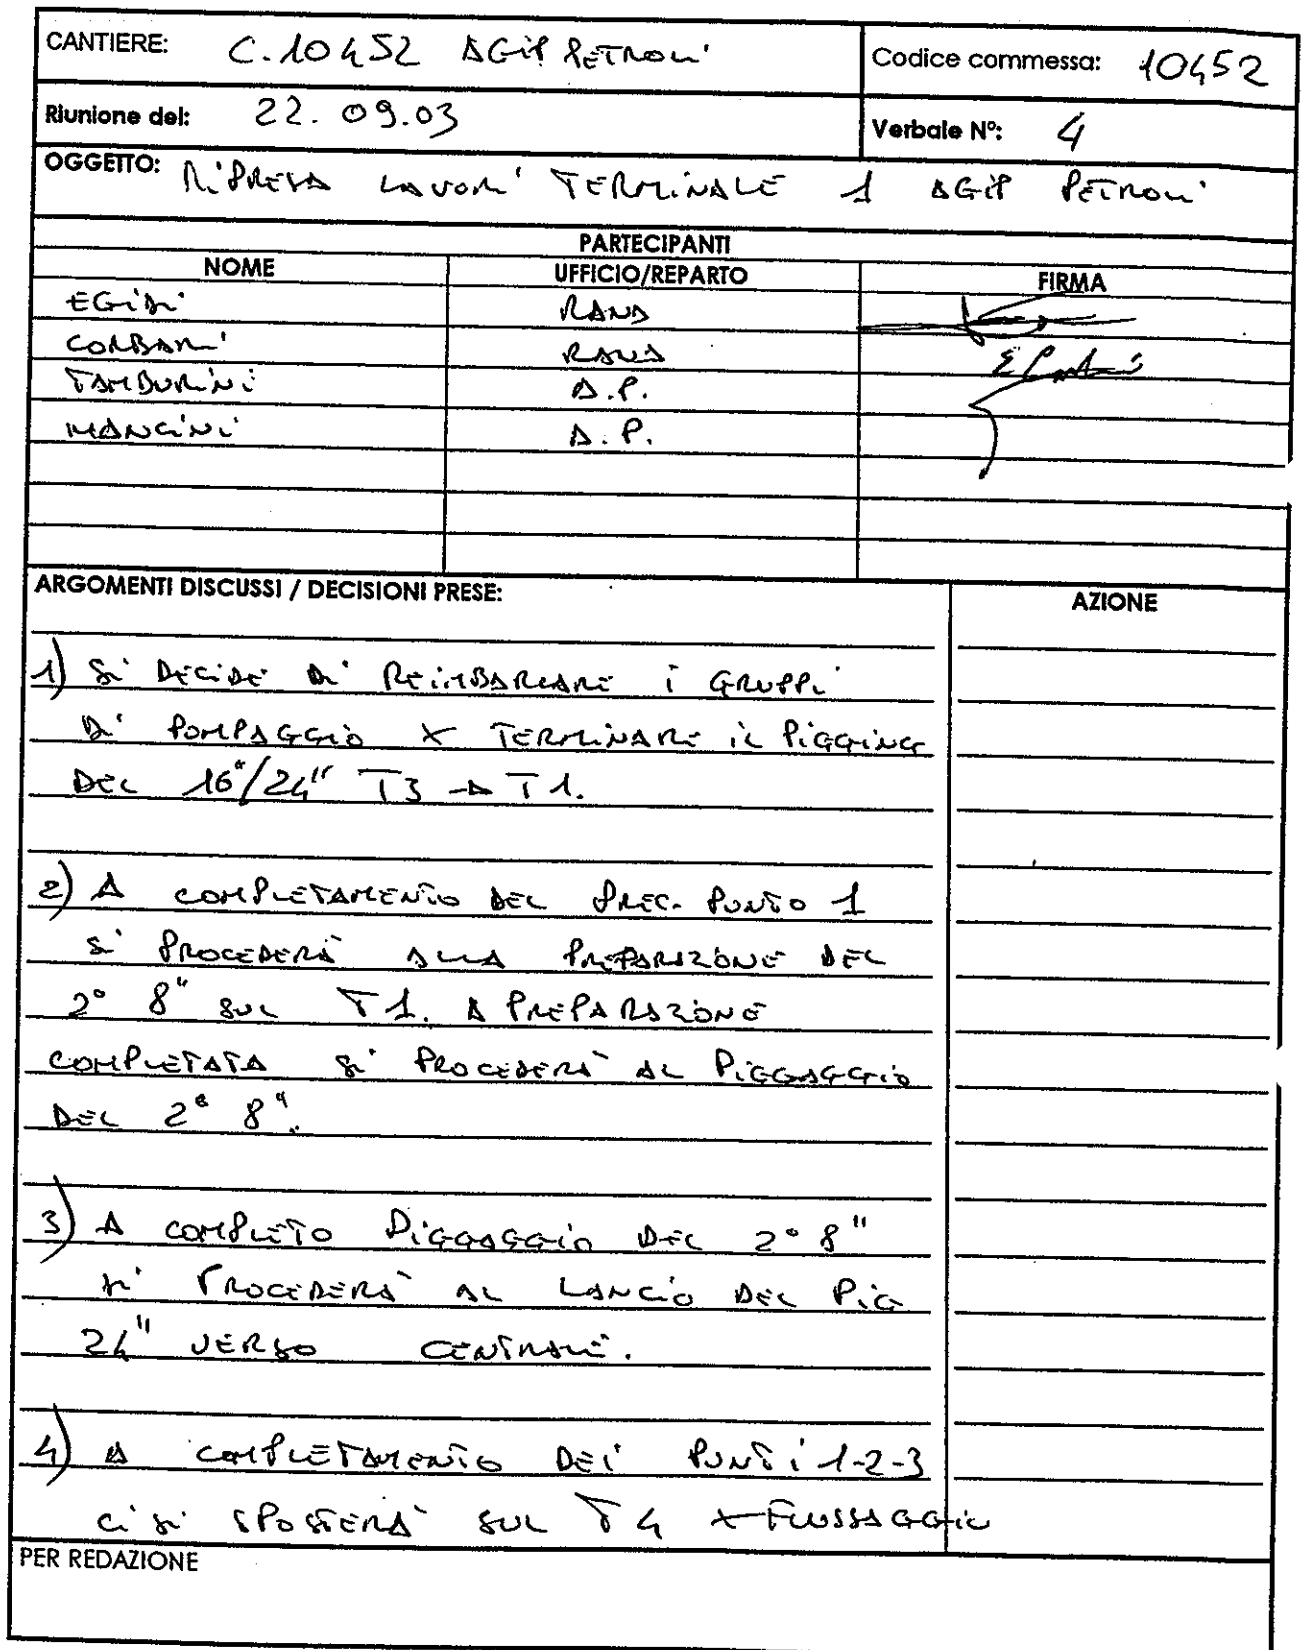 CANTIERE: C.10452 AGIP PETROLI
Codice commessa: 10452
Riunione del: 22.09.03
Verbale N°: 4
OGGETTO: RIPRESA LAVORI TERMINALE 1 AGIP PETROLI
PARTECIPANTI
NOME UFFICIO/REPARTO FIRMA
EGIDI RANA
CORBARI RANA
TAMBURINI A.P.
MANCINI A.P.
ARGOMENTI DISCUSSI / DECISIONI PRESE: AZIONE
1) SI DECIDE DI REIMBARCARE I GRUPPI
DI POMPAGGIO X TERMINARE IL PIGGING
DEL 16"/24" T3 → T1.
2) A COMPLETAMENTO DEL PREC. PUNTO 1
SI PROCEDERÀ ALLA PREPARAZIONE DEL
2° 8" SUL T1. A PREPARAZIONE
COMPLETATA SI PROCEDERÀ AL PIGGAGGIO
DEL 2° 8".
3) A COMPLETO PIGGAGGIO DEL 2° 8"
SI PROCEDERÀ AL LANCIO DEL PIG
24" VERSO CENTRALE.
4) A COMPLETAMENTO DEI PUNTI 1-2-3
CI SI SPOSTERÀ SUL T4 X FLUSSAGGIO
PER REDAZIONE